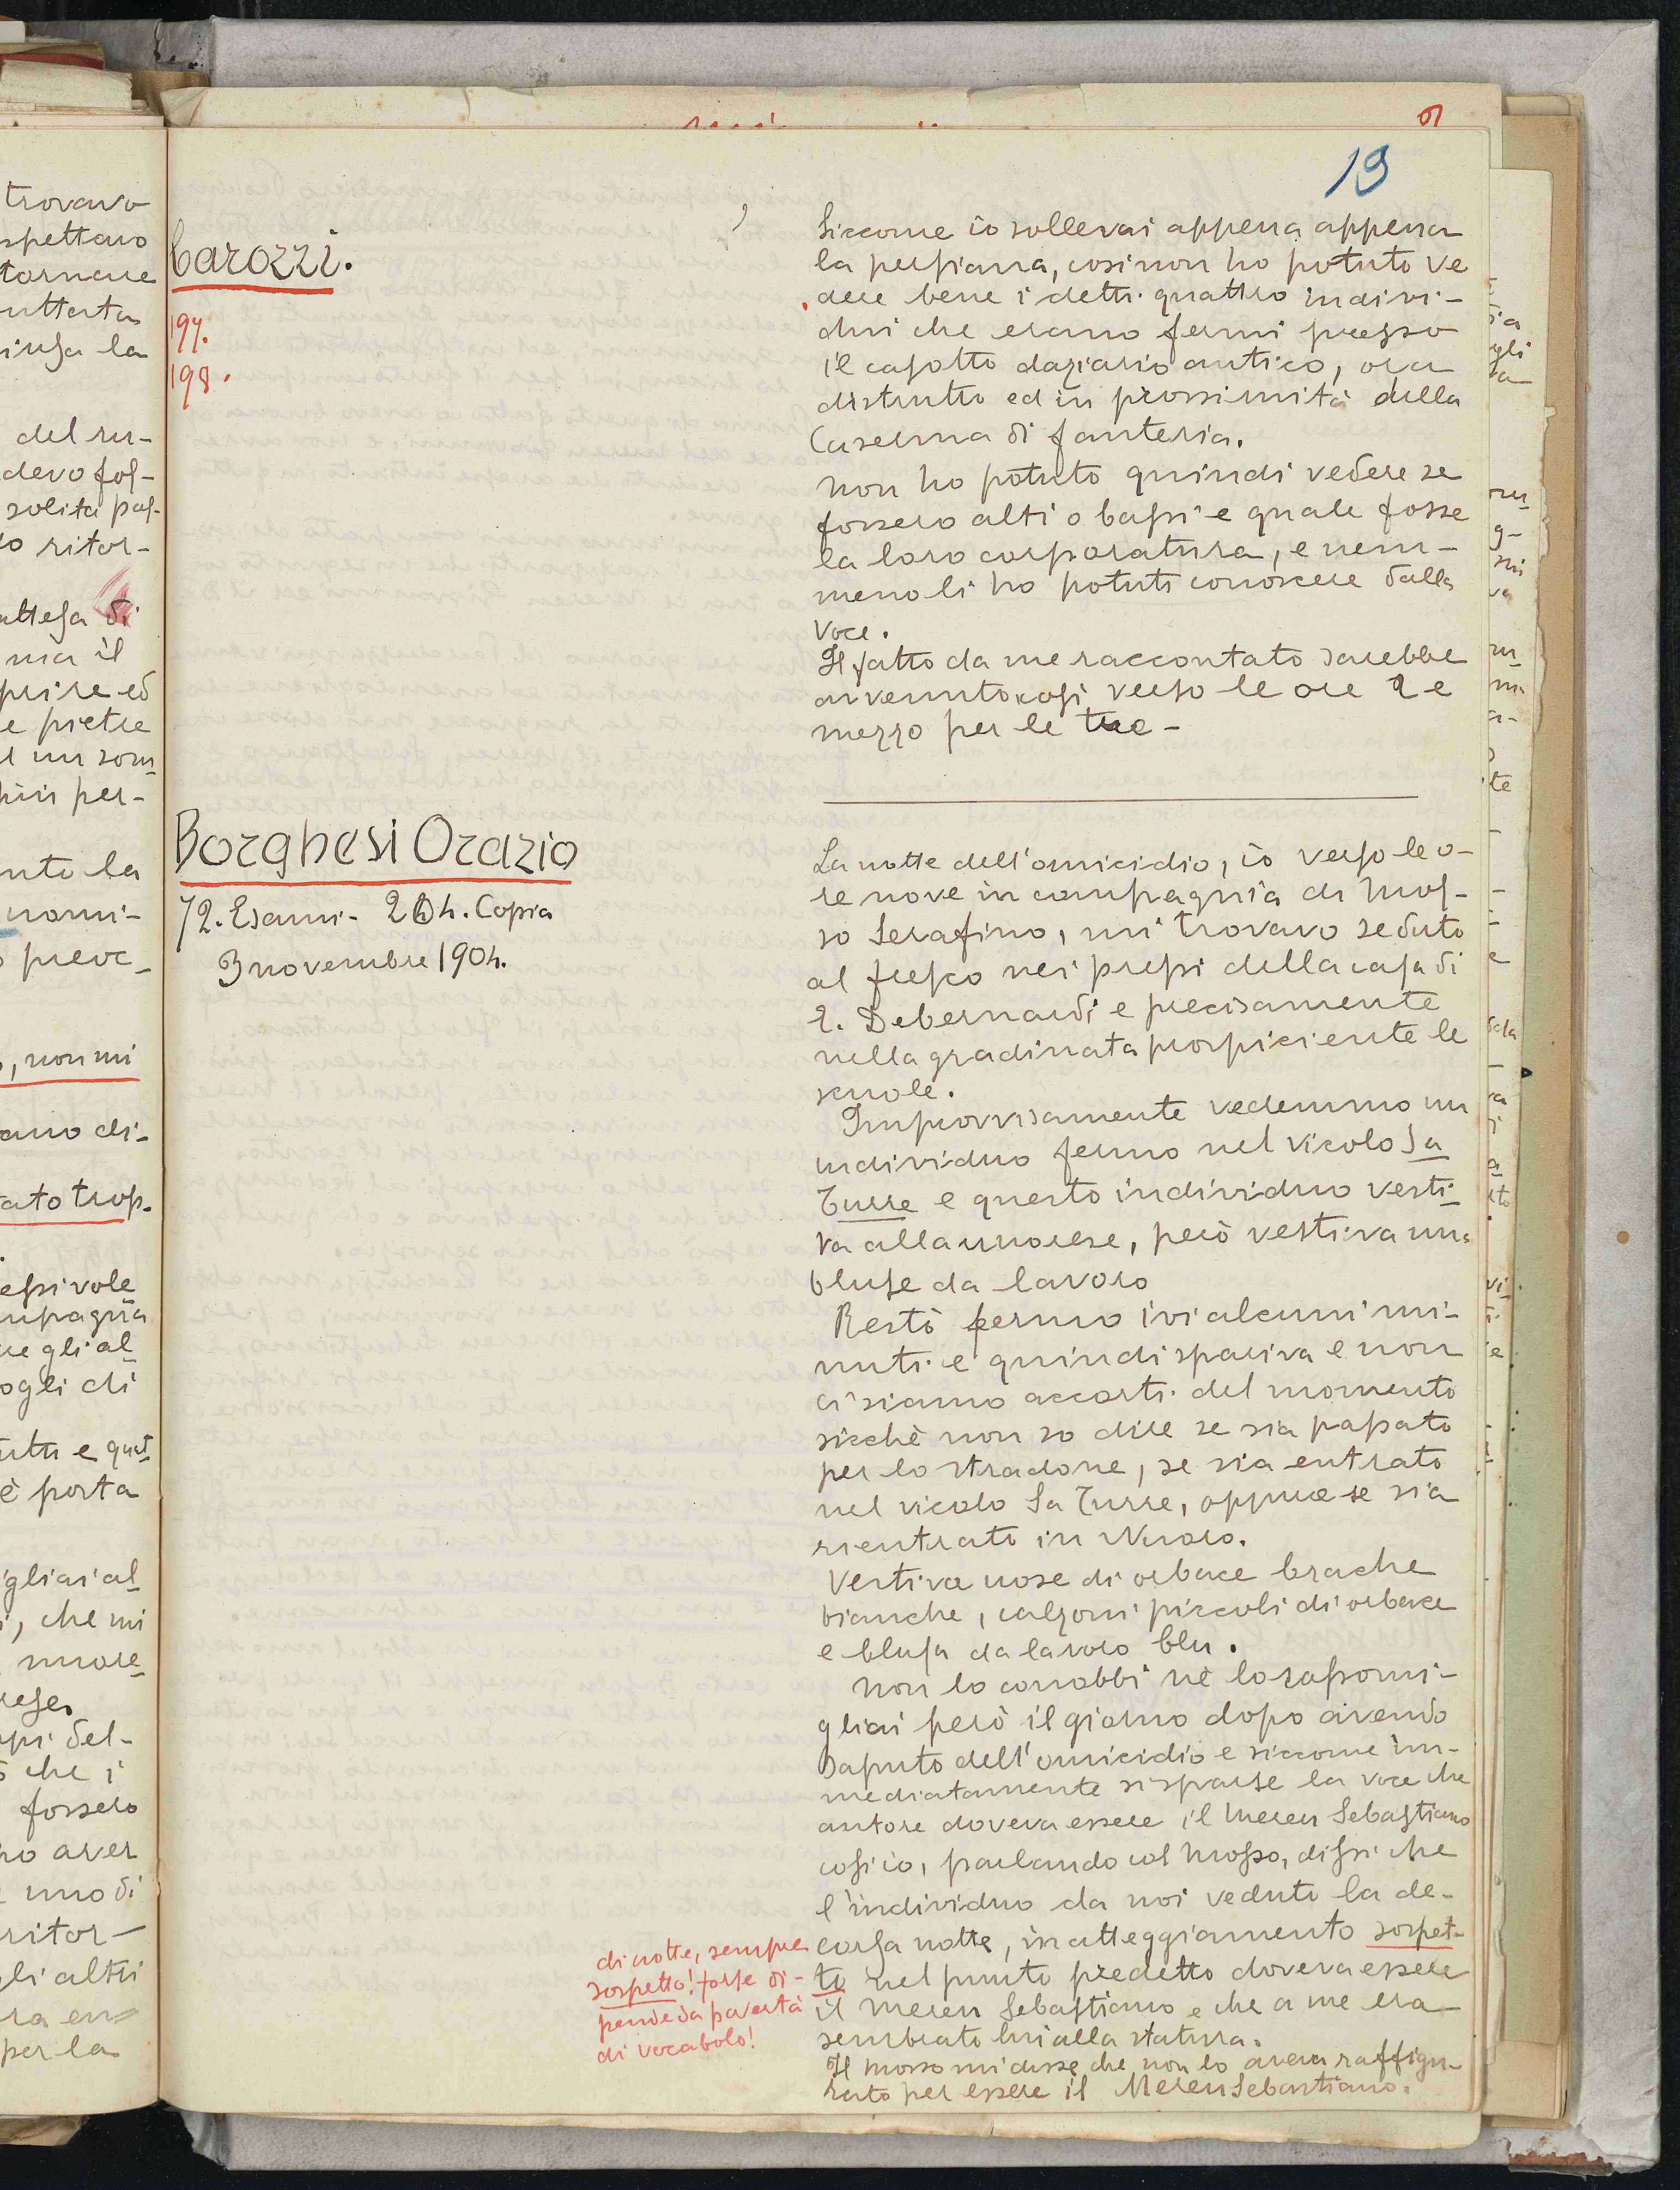 trovavo
spettavo
tornare
del ru-
devo fos-
solita pas-
ritor-
attesa di
ma il
e pietre
un som
più per-
nto la
nomi-
preve-
, non mi
ano di-
ato trop-
essi vole
mpagna
e gli al
ogli di
utti e quat
è porta
igliai al
i, che mi
nuore
del-
che i
fossero
aver
uno di
ritor-
gli altri
per la
19
barozzi.
197.
198.
Siccome io sollevai appena appena
la persiana, così non ho potuto ve
dere bene i detti quattro indivi-
dui che erano fermi presso
il casotto daziario antico, ora
distrutto ed in prossimità della
Caserma di fanteria.
Non ho potuto quindi vedere se
fossero alti o bassi e quale fosse
la loro corporatura, e nem-
meno li ho potuti conoscere dalla
voce.
Il fatto da me raccontato sarebbe
avvenuto così verso le ore 2 e
mezzo per le tre -
Borghesi Orazio
72. Esami - 204. Copia
3 novembre 1904.
La notte dell'omicidio, io verso le o-
re nove in compagnia di Mos-
so Serafino, mi trovavo seduto
al fresco nei pressi della casa di
E. Debernardi e precisamente
nella gradinata prospiciente le
scuole.
Improvvisamente vedemmo un
individuo fermo nel vicolo Sa
Turre e questo individuo vesti-
va alla nuorese, però vestiva una
bluse da lavoro
Restò fermo ivi alcuni mi-
nuti e quindi spariva e non
ci siamo accorti del momento
sicchè non so dire se sia passato
per lo stradone, se sia entrato
nel vicolo Sa Turre, oppure se sia
rientrato in Nuoro.
Vestiva uose di orbace brache
bianche, calzoni piccoli di orbace
e blusa da lavoro blu.
Non lo conobbi nè lo rassomi-
gliai però il giorno dopo avendo
saputo dell'omicidio e siccome im-
mediatamente si sparse la voce che
autore doveva essere il Mereu Sebastiano
così io, parlando col Mosso, dissi che
l'individuo da noi veduto la de-
corsa notte, in atteggiamento sospet-
to nel punto predetto doveva essere
il Mereu Sebastiano e che a me era
sembrato lui alla statura.
Il Mosso mi disse che non lo aveva raffigu-
rato per essere il Mereu Sebastiano.
di notte, sempre
sospetto! forse di-
pende da povertà
di vocabolo!